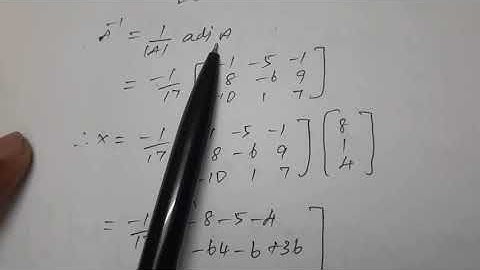 A⁻¹ = 1/|A| adj A
= -1/17 [-1 -5 -1
8 -6 9
-10 1 7]
∴ X = -1/17 -1 -5 -1
8 -6 9
-10 1 7] [8
1
4]
= -8 -5 -4
-64 -6 +36]